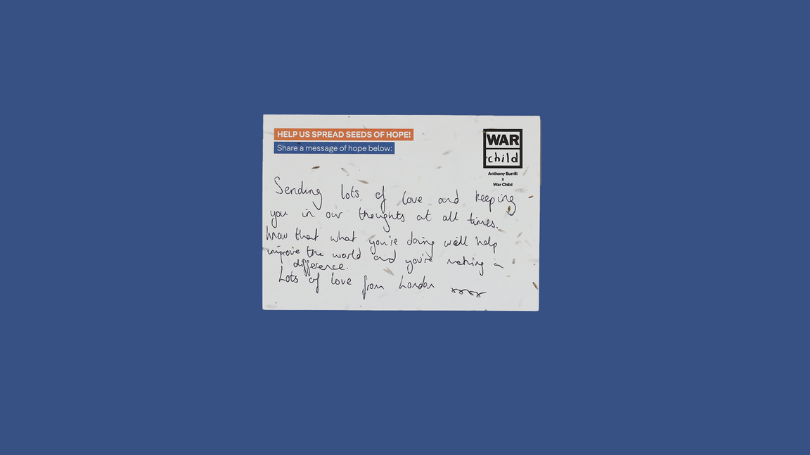 HELP US SPREAD SEEDS OF HOPE!
Share a message of hope below:
WAR
child
Anthony Burrill
x
War Child
Sending lots of love and keeping
you in our thoughts at all times.
know that what you're doing will help
improve the world and you're making a
difference.
Lots of love from London xxxx